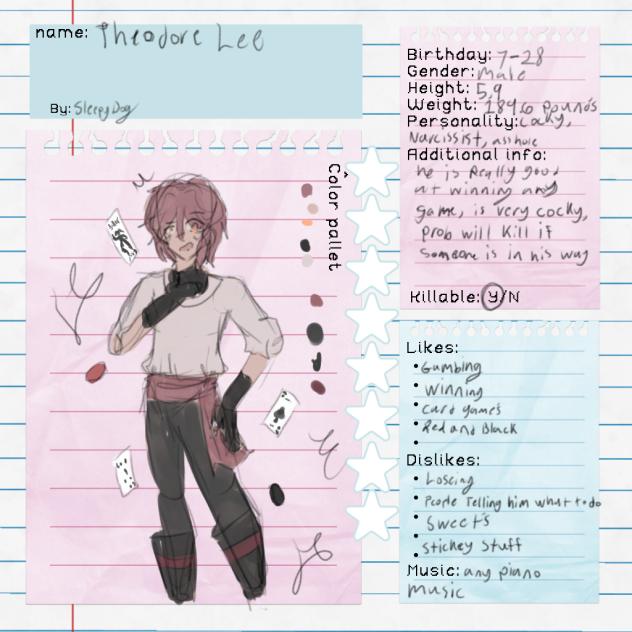 name: Theodore Lee
By: SleepyDog
Color pallet
Birthday: 7-28
Gender: Male
Height: 5,9
Weight: pounds
Personality: Cocky,
Narcissist, asshole
Additional info:
he is Really good
at winning any
game, is very cocky,
prob will Kill if
Someone is in his way
Killable: Y/N
Likes:
• Gambing
• Winning
• Card games
• Red and Black
•
Dislikes:
• Loscing
• People Telling him what to do
• Sweets
•
• Stickey Stuff
Music: any piano
Music